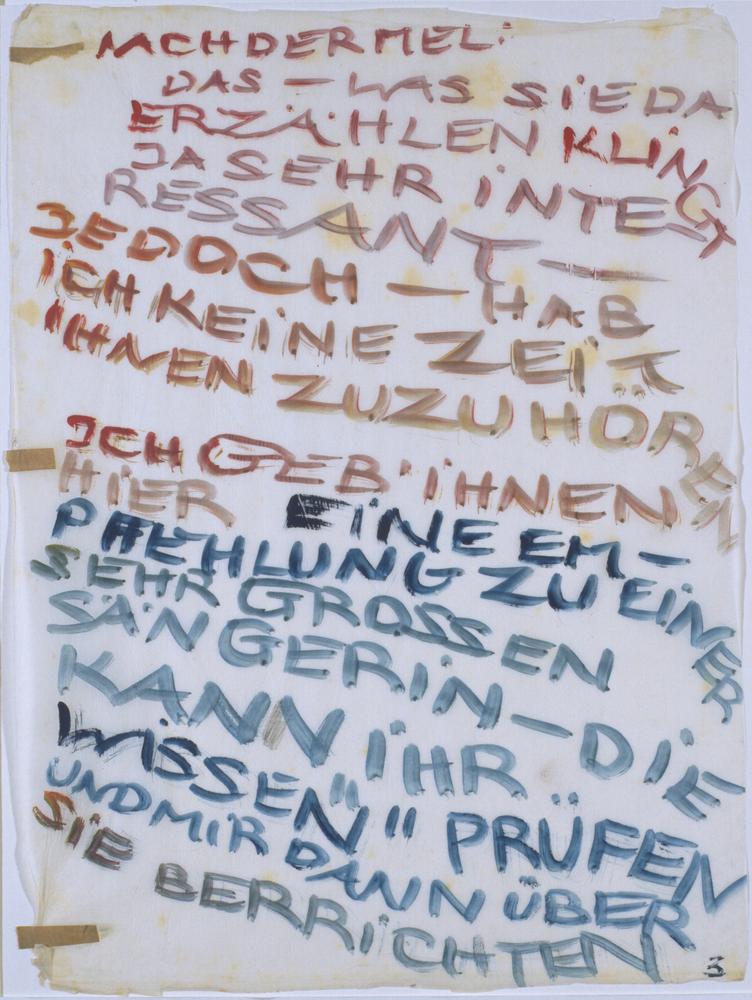 NACH DER MEL:
DAS – WAS SIE DA
ERZÄHLEN KLING
JA SEHR INTE
RESSANT –
JEDOCH – HAB
ICH KEINE ZEIT
IHNEN ZUZUHÖREN
ICH GEB' IHNEN
HIER EINE EM–
PFEHLUNG ZU EINER
SEHR GROSSEN
SÄNGERIN – DIE
KANN IHR
WISSEN" PRÜFEN
UND MIR DANN ÜBER
SIE BERRICHTEN
3